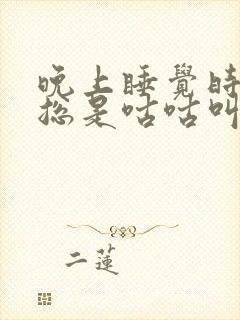 晚上睡覺時
總是咕咕叫
二蓮